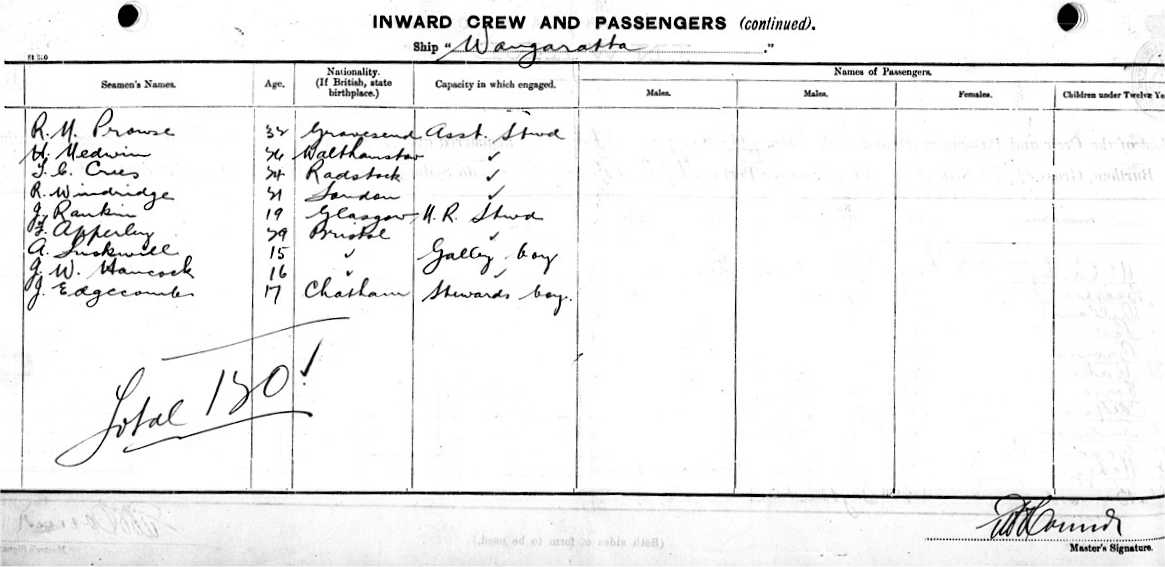 INWARD CREW AND PASSENGERS (continued).
Ship "Wangaratta"
Seamen's Names. Age. Nationality. (If British, state birthplace.) Capacity in which engaged. Names of Passengers.
Males. Males. Females. Children under Twelve Ye
R. M. Prowse 32 Gravesend Asst. Stwd
H. Medwin 26 Walthamstow ✓
24 Radstock ✓
R. Windridge 21 London ✓
J. Rankin 19 Glasgow M. R. Stwd
F. Apperley 29 Bristol ✓
A. Luskwill 15 ✓ Galley boy
J. W. Hancock 16 ✓ ✓
J. Edgecombe 17 Chatham Stewards boy.
Total 130
Master's Signature.
(Both sides of form to be used.)